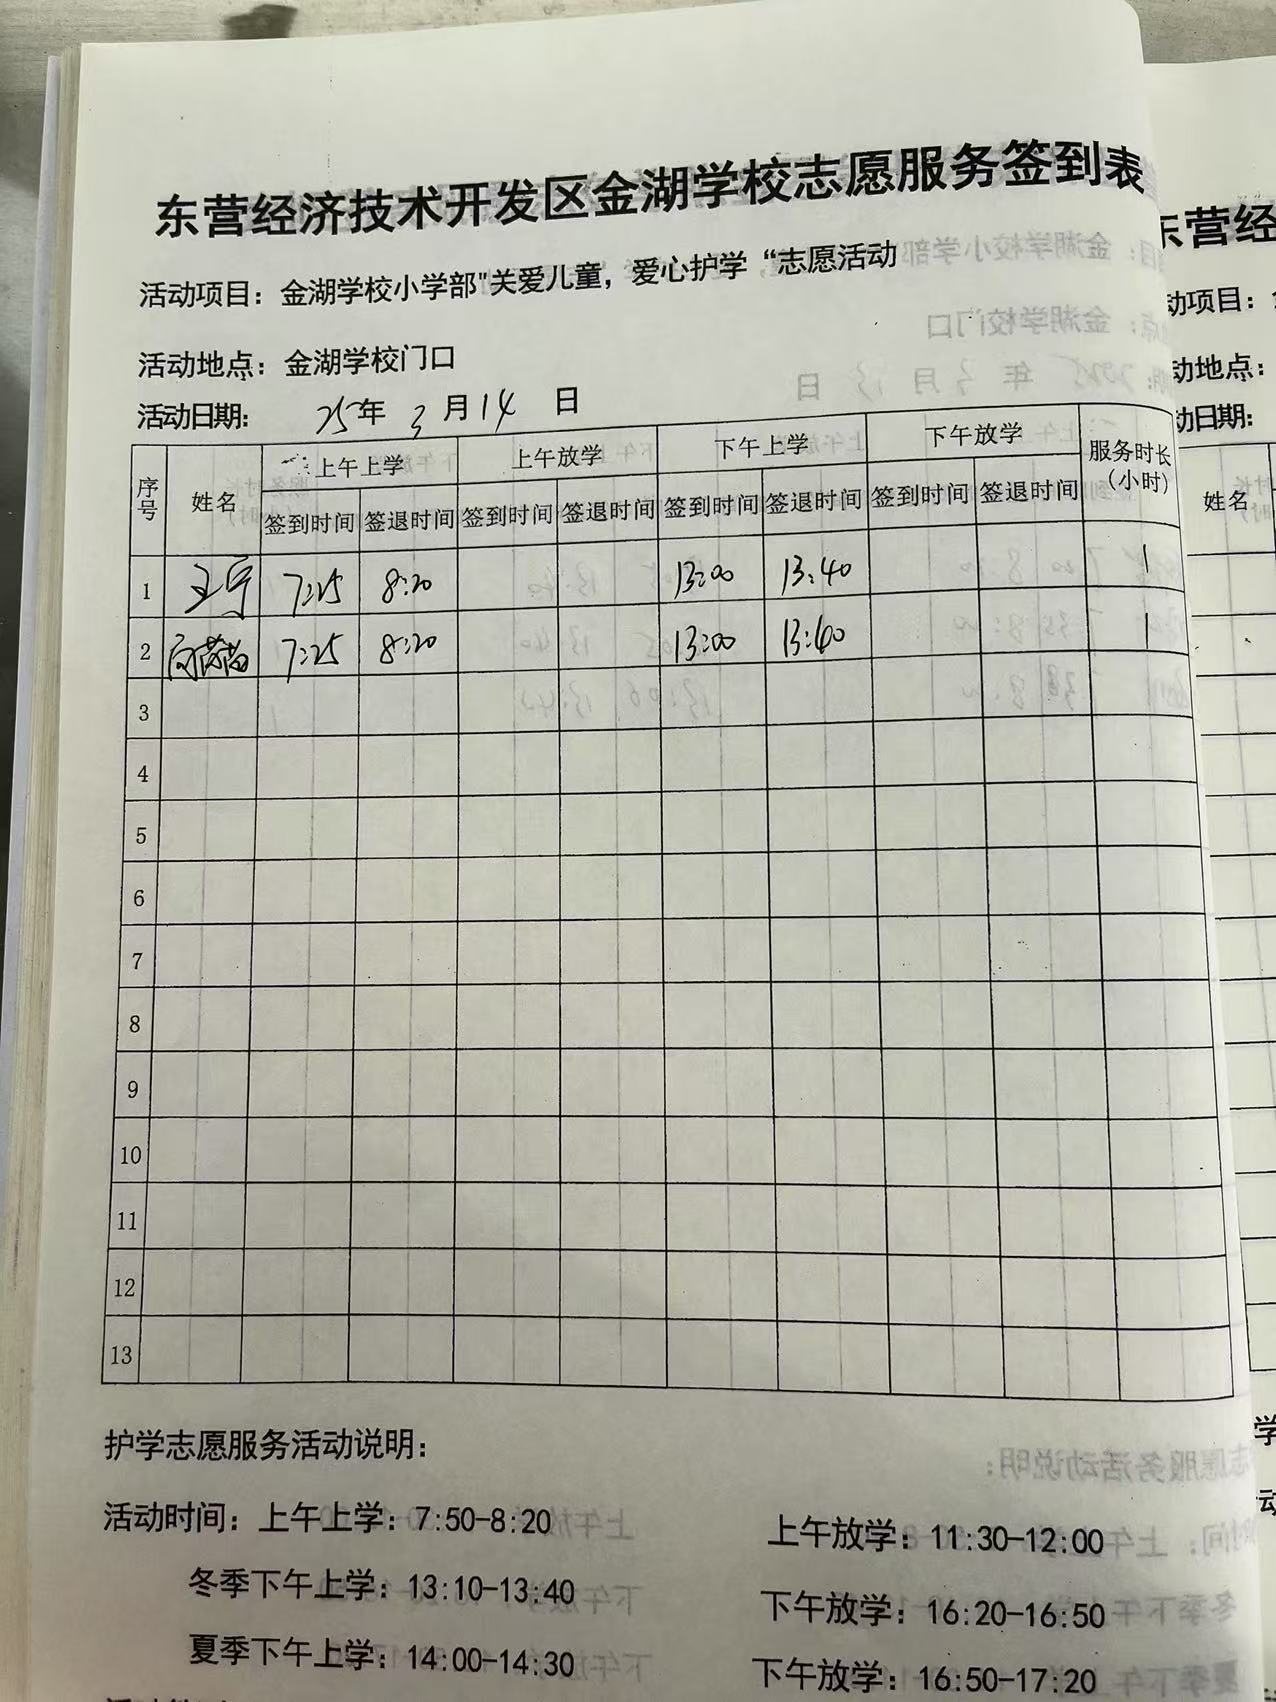 东营经济技术开发区金湖学校志愿服务签到表
活动项目：金湖学校小学部"关爱儿童，爱心护学“志愿活动
活动地点：金湖学校门口
活动日期： 25年 3月14 日
序号 姓名 上午上学 上午放学 下午上学 下午放学 服务时长（小时）
签到时间 签退时间 签到时间 签退时间 签到时间 签退时间 签到时间 签退时间
1 王宁 7:25 8:20 13:00 13:40 1
2 7:25 8:20 13:00 13:40 1
3
4
5
6
7
8
9
10
11
12
13
护学志愿服务活动说明：
活动时间：上午上学：7:50-8:20 上午放学：11:30-12:00
冬季下午上学：13:10-13:40 下午放学：16:20-16:50
夏季下午上学：14:00-14:30 下午放学：16:50-17:20
东营经
动项目：
动地点：
动日期：
姓名